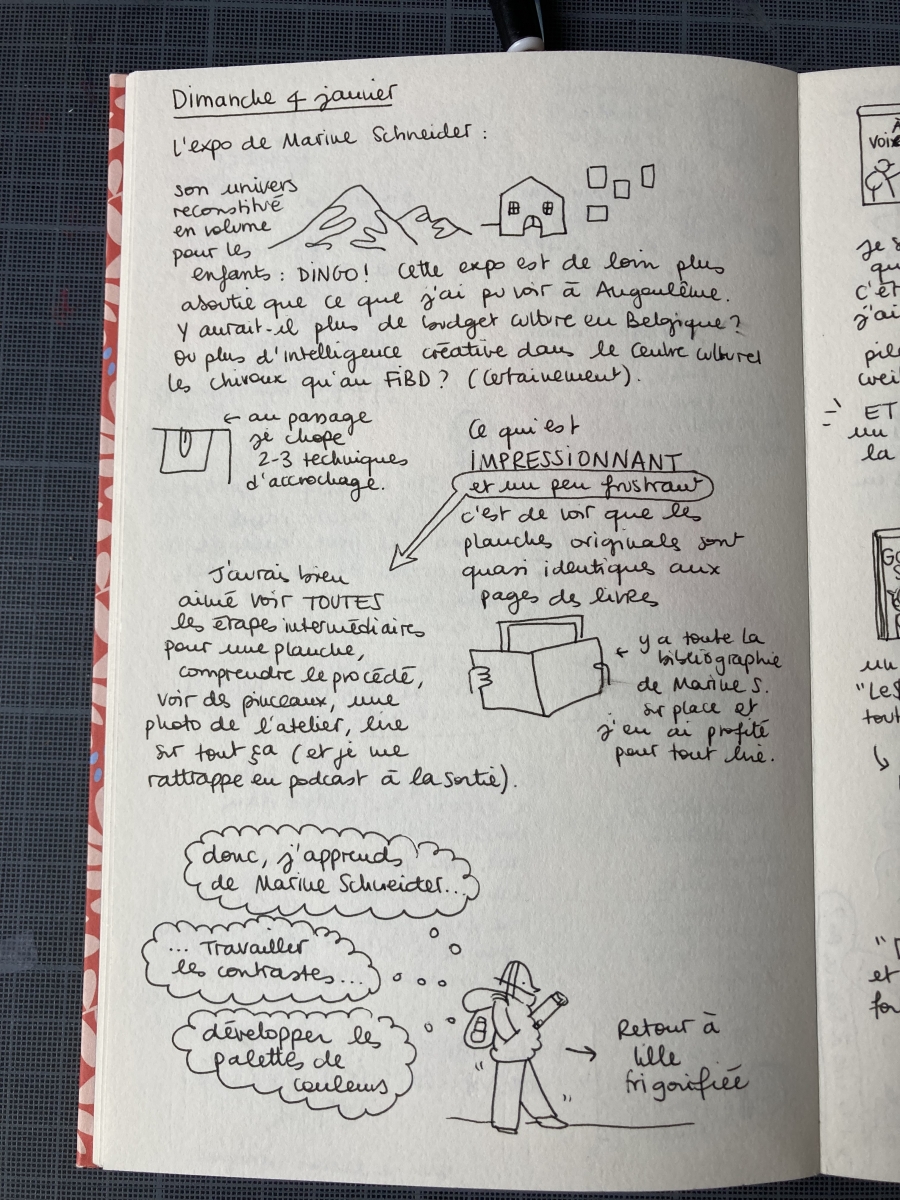 Dimanche 4 janvier
l'expo de Marine Schneider :
son univers
reconstitué
en volume
pour les
enfants : DINGO ! Cette expo est de loin plus
aboutie que ce que j'ai pu voir à Angoulême.
Y aurait-il plus de budget culture en Belgique ?
Ou plus d'intelligence créative dans le Centre culturel
les chiroux qu'au FIBD ? (Certainement).
← au passage
je chope
2-3 techniques
d'accrochage.
Ce qui est
IMPRESSIONNANT
et un peu frustrant
c'est de voir que les
planches originals sont
quasi identiques aux
pages des livres
J'aurais bien
aimé voir TOUTES
les étapes intermédiaires
pour une planche,
comprendre le procédé,
voir des pinceaux, une
photo de l'atelier, lire
sur tout ça (et je me
rattrappe en podcast à la sortie).
← y a toute la
bibliographie
de Marine S.
sur place et
j'en ai profité
pour tout lire.
donc, j'apprends
de Marine Schneider...
... Travailler
les contrastes...
développer les
palettes de
couleurs
→ Retour à
Lille
frigorifiée
À
je s
qu
c'êt
j'ai
pile
ET
un
la
un
"Les
tout
et